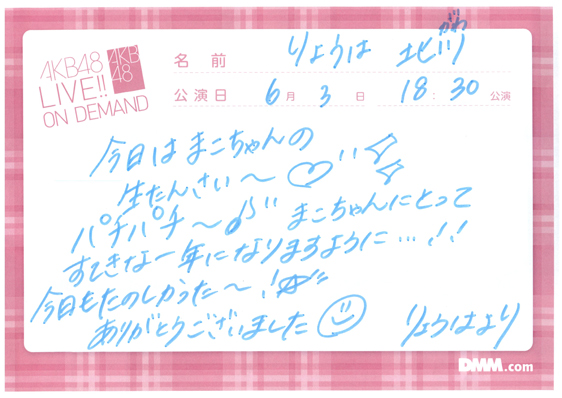 AKB48
LIVE!!
ON DEMAND
AKB
48
名前 りょうは 北がわ
公演日 6月3日 18:30 公演
今日はまこちゃんの
生たんさい〜♡
パチパチ〜♪ まこちゃんにとって
すてきな一年になりますように…!!
今日もたのしかった〜!☆
ありがとうございました☺ りょうはより
DMM.com